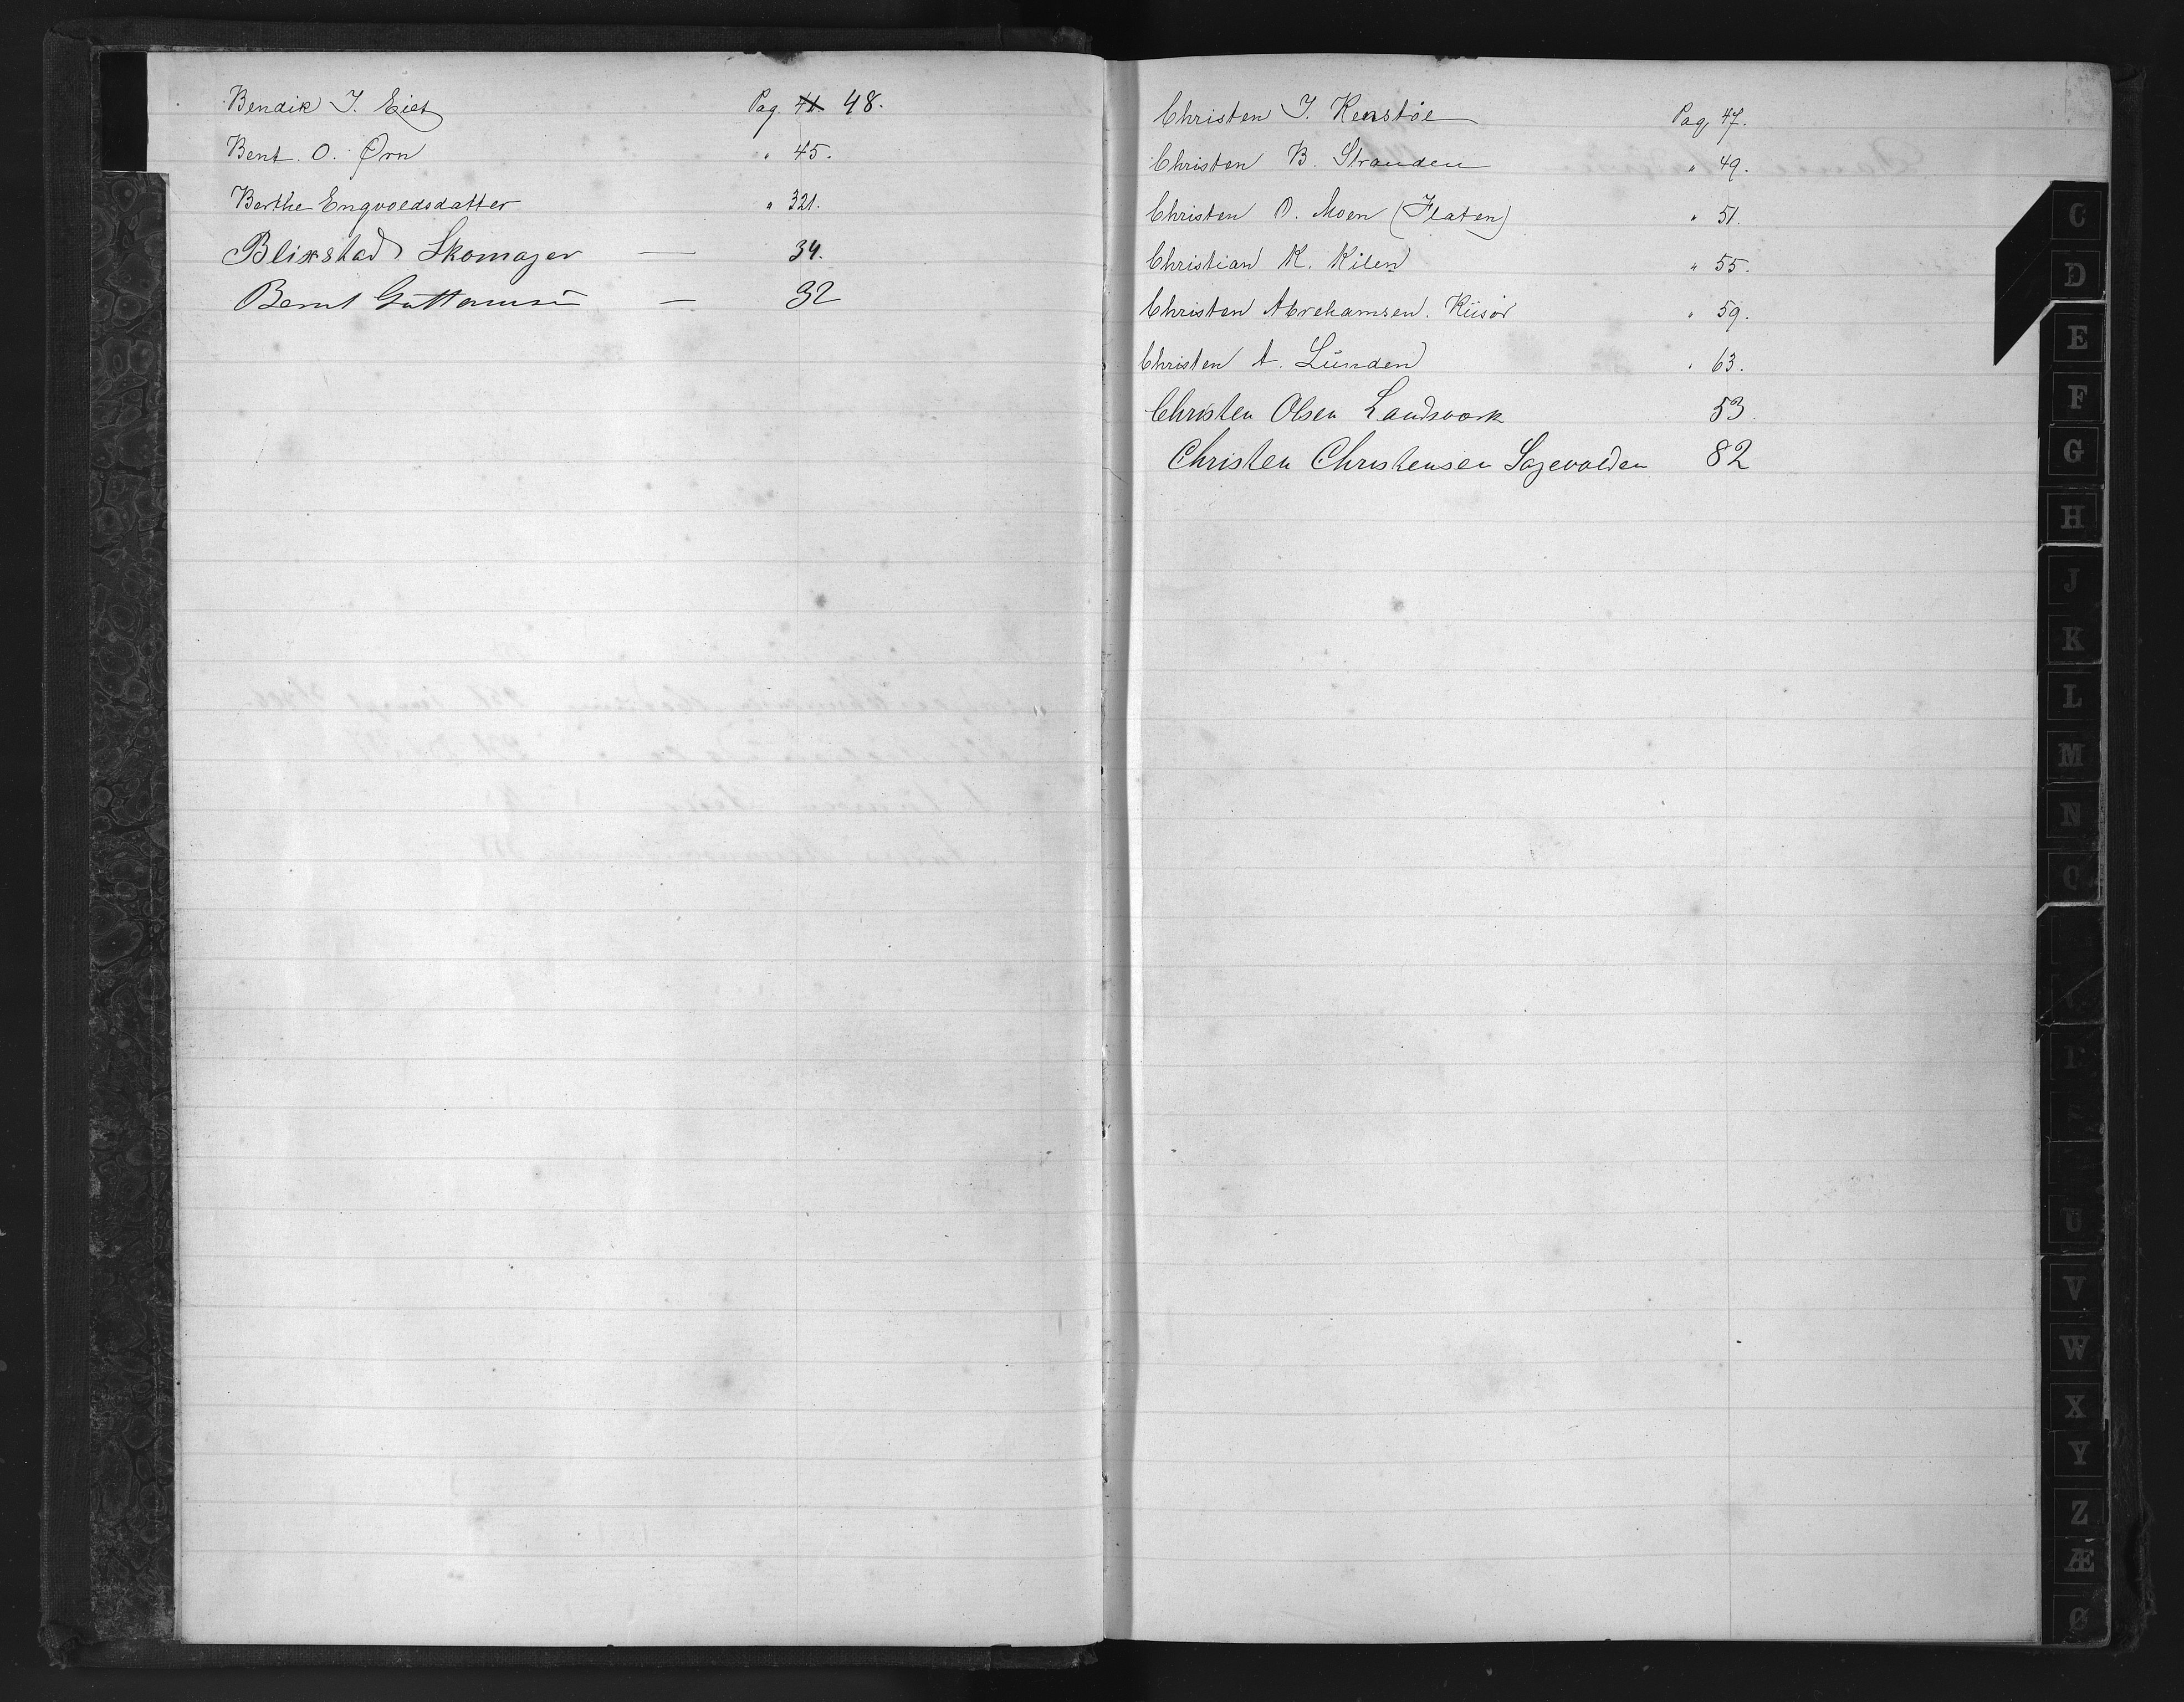 Bendik J. Eiet Pag. 41. 48.
Bent. O. Ørn " 45.
Berthe Engvoldsdatter " 321.
Blixstad Skomager — 34.
Bernt Guttormsen — 32
Christen J. Kenstøl Pag. 47.
Christen B. Stranden " 49.
Christen O. Moen (Flaten) " 51.
Christian K. Kilen " 55.
Christen Abrahamsen. Riisør " 59.
Christen A. Lunden " 63.
Christen Olsen Landsverk 53.
Christen Christensen Sagevolden 82
C
D
E
F
G
H
J
K
L
M
N
O
U
V
W
X
Y
Z
Æ
Ø